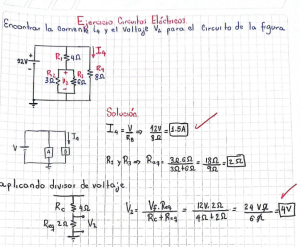 Ejercicio Circuitos Eléctricos.
Encontrar la corriente I4 y el voltaje V2 para el circuito de la figura
I4
R1 4Ω
12V
R2 3Ω
V2
R3 6Ω
R4 8Ω
Solución
I4 = V/R4 ⇒ 12V/8Ω = 1.5A
V
A
B
I4
R2 y R3 ⇒ Req = 3Ω.6Ω/3Ω+6Ω = 18Ω/9Ω = 2Ω
aplicando divisor de voltaje
Rc 4Ω
Req 2Ω
V2
V2 = VF.Req/Rc+Req = 12V.2Ω/4Ω+2Ω = 24VΩ/6Ω = 4V